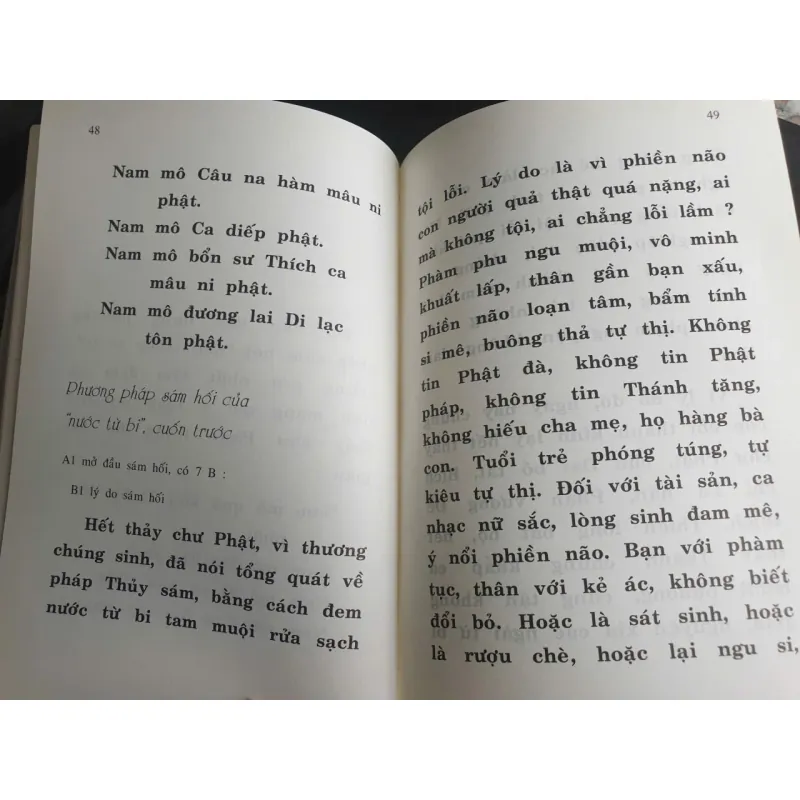 48
Nam mô Câu na hàm mâu ni
phật.
Nam mô Ca diếp phật.
Nam mô bổn sư Thích ca
mâu ni phật.
Nam mô đương lai Di lạc
tôn phật.
Phương pháp sám hối của
"nước từ bi", cuốn trước
A1 mở đầu sám hối, có 7 B :
B1 lý do sám hối
Hết thảy chư Phật, vì thương
chúng sinh, đã nói tổng quát về
pháp Thủy sám, bằng cách đem
nước từ bi tam muội rửa sạch
49
tội lỗi. Lý do là vì phiền não
con người quả thật quá nặng, ai
mà không tội, ai chẳng lỗi lầm ?
Phàm phu ngu muội, vô minh
khuất lấp, thân gần bạn xấu,
phiền não loạn tâm, bẩm tính
si mê, buông thả tự thị. Không
tin Phật đà, không tin Phật
pháp, không tin Thánh tăng,
không hiếu cha mẹ, họ hàng bà
con. Tuổi trẻ phóng túng, tự
kiêu tự thị. Đối với tài sản, ca
nhạc nữ sắc, lòng sinh đam mê,
ý nổi phiền não. Bạn với phàm
tục, thân với kẻ ác, không biết
đổi bỏ. Hoặc là sát sinh, hoặc
là rượu chè, hoặc lại ngu si,